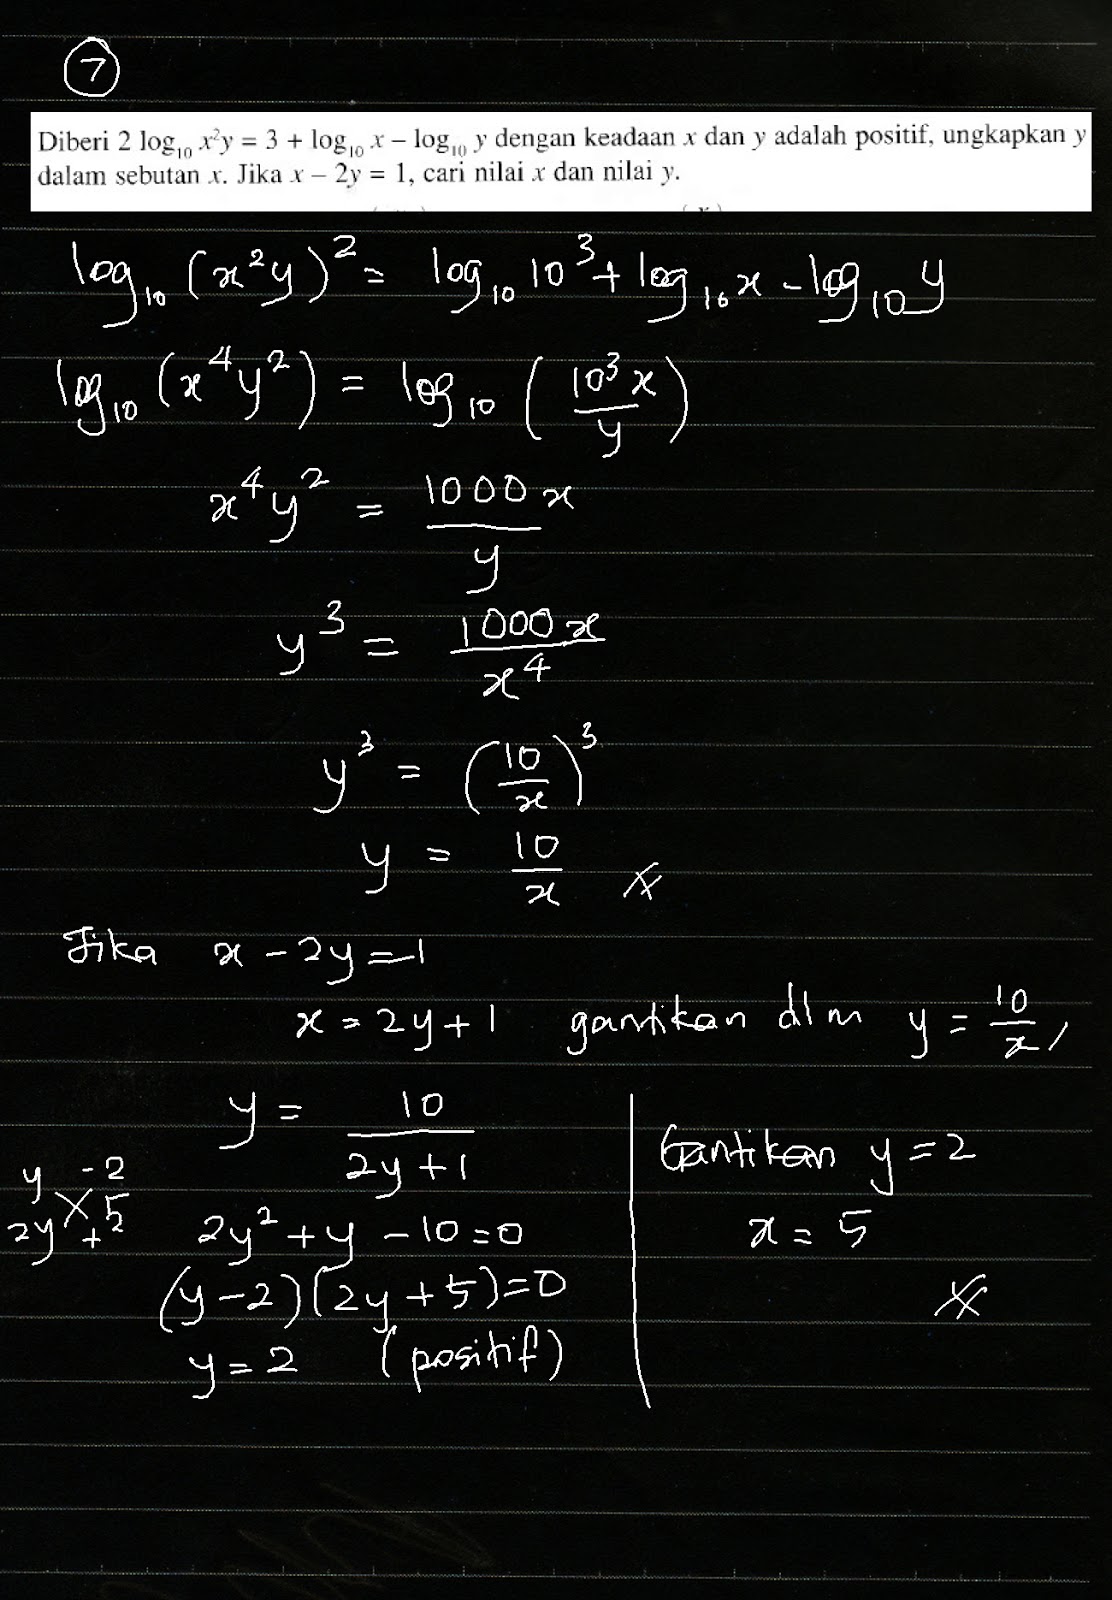 7
Diberi 2 log₁₀ x²y = 3 + log₁₀ x – log₁₀ y dengan keadaan x dan y adalah positif, ungkapkan y
dalam sebutan x. Jika x – 2y = 1, cari nilai x dan nilai y.
log₁₀ (x²y)² = log₁₀ 10³ + log₁₀ x - log₁₀ y
log₁₀ (x⁴y²) = log₁₀ (10³x / y)
x⁴y² = 1000x / y
y³ = 1000x / x⁴
y³ = (10 / x)³
y = 10 / x
Jika x - 2y = 1
x = 2y + 1 gantikan dlm y = 10 / x,
y = 10 / 2y + 1
y -2
2y + 5 2
2y² + y - 10 = 0
(y - 2)(2y + 5) = 0
y = 2 (positif)
Gantikan y = 2
x = 5